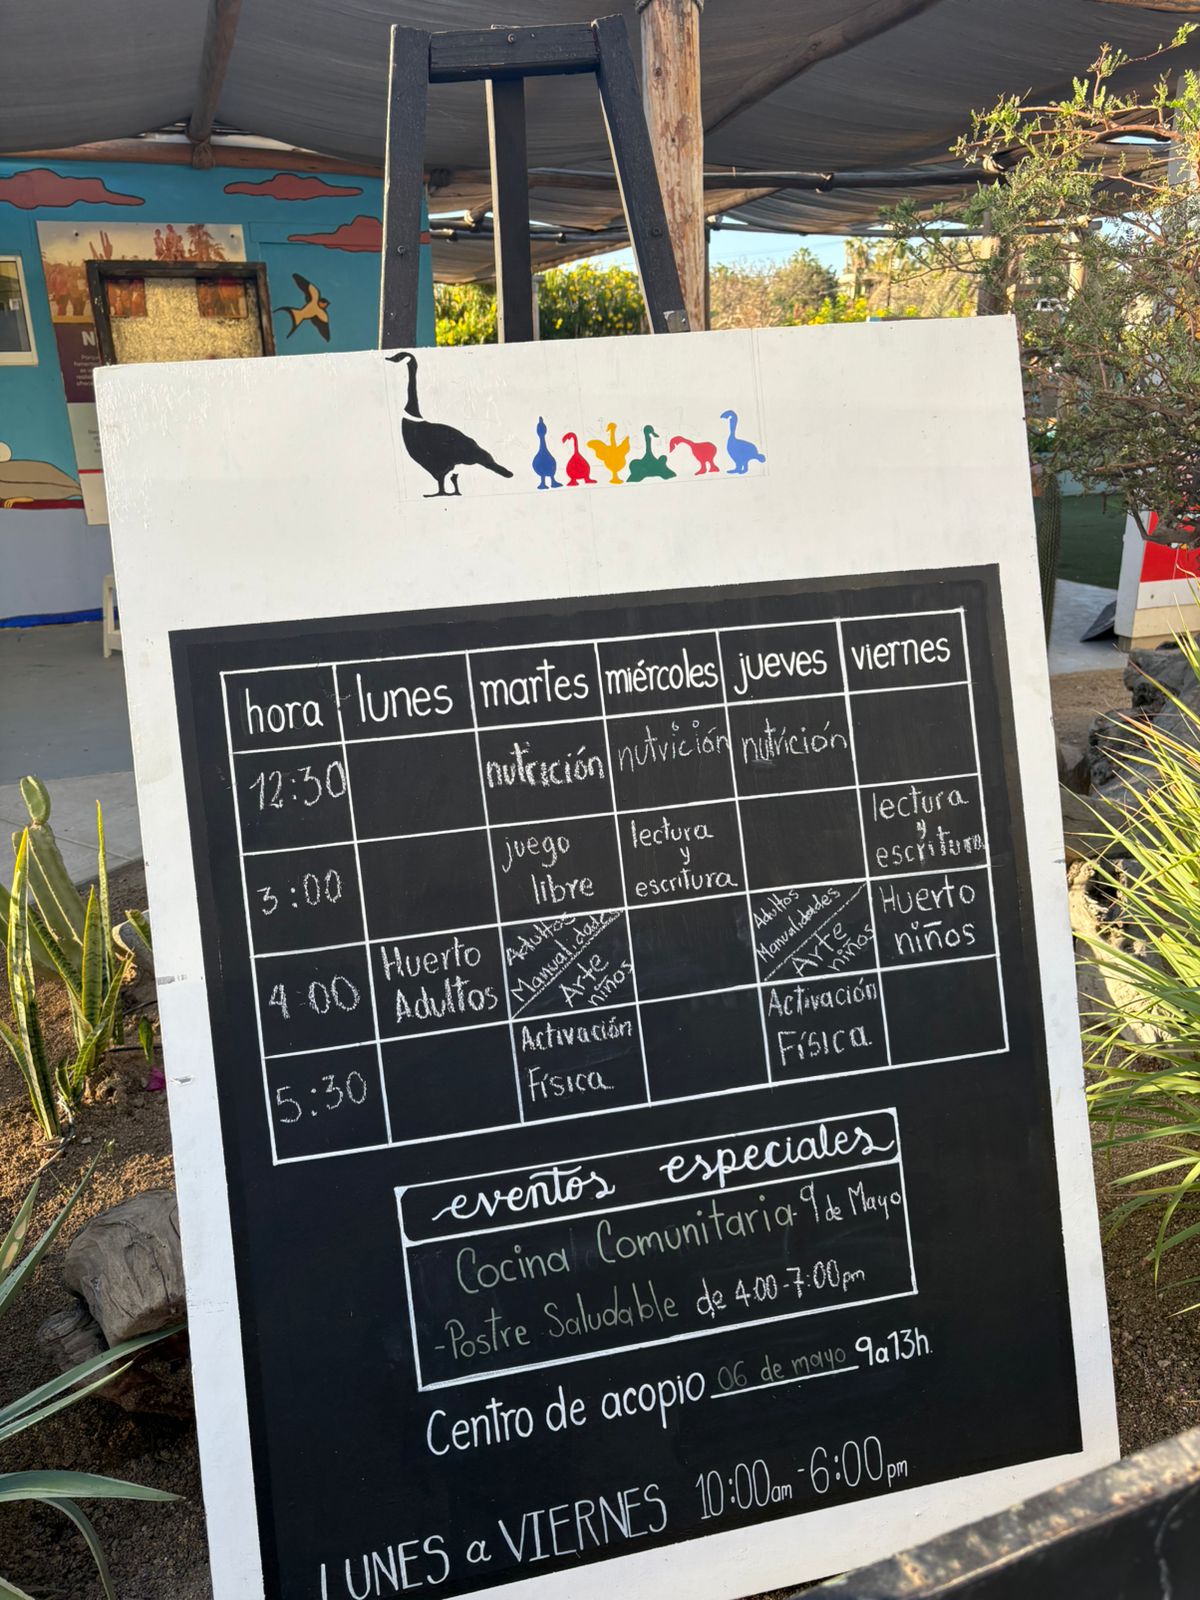 hora lunes martes miércoles jueves viernes
12:30 nutrición nutrición nutrición
3:00 juego libre lectura y escritura lectura y escritura
4:00 Huerto Adultos Adultos Manualidades Arte niños Adultos Manualidades Arte niños Huerto niños
5:30 Activación Física Activación Física
eventos especiales
Cocina Comunitaria 9 de Mayo
-Postre Saludable de 4:00-7:00pm
Centro de acopio 06 de mayo 9a13h.
LUNES a VIERNES 10:00am -6:00pm